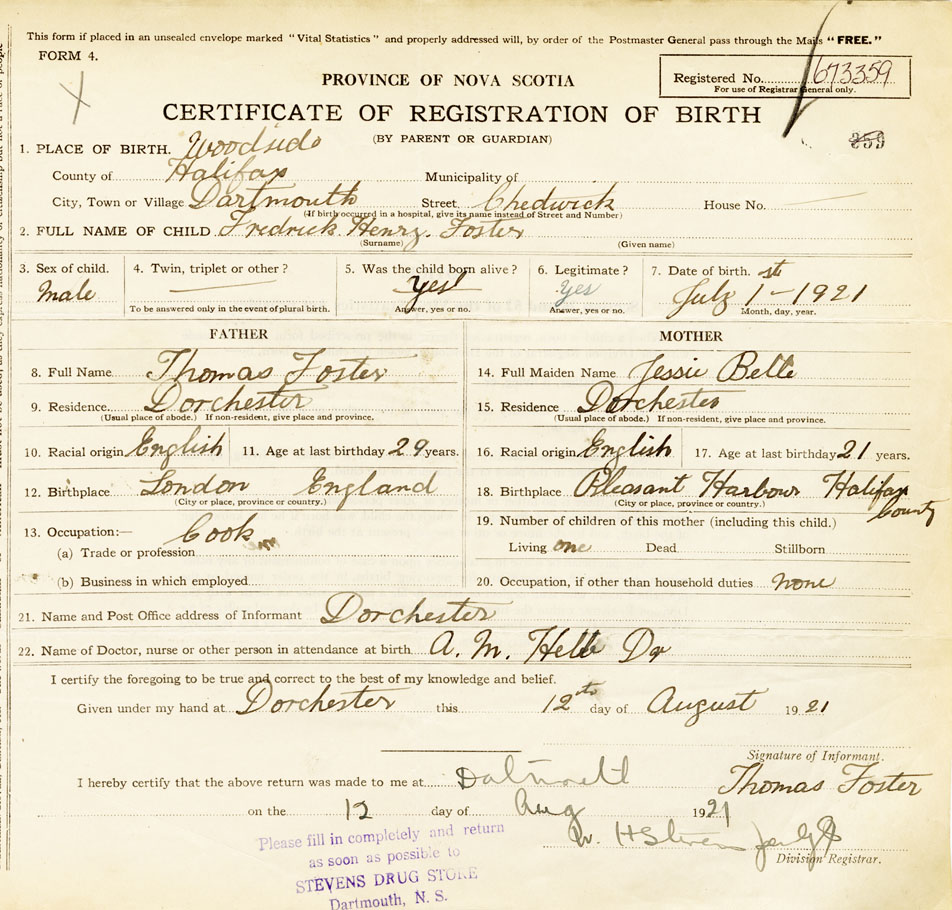 This form if placed in an unsealed envelope marked "Vital Statistics" and properly addressed will, by order of the Postmaster General pass through the Mails "FREE."
FORM 4.
PROVINCE OF NOVA SCOTIA
Registered No. 673359
For use of Registrar General only.
CERTIFICATE OF REGISTRATION OF BIRTH
(BY PARENT OR GUARDIAN)
359
1. PLACE OF BIRTH. Woodside
County of Halifax Municipality of
City, Town or Village Dartmouth Street. Chedwick House No.
(If birth occurred in a hospital, give its name instead of Street and Number)
2. FULL NAME OF CHILD Fredrick Henry. Foster
(Surname) (Given name)
3. Sex of child. 4. Twin, triplet or other? 5. Was the child born alive? 6. Legitimate? 7. Date of birth.
Male Yes Yes July 1st - 1921
To be answered only in the event of plural birth. Answer, yes or no. Answer, yes or no. Month, day, year.
FATHER MOTHER
8. Full Name Thomas Foster 14. Full Maiden Name Jessie Belle
9. Residence. Dorchester 15. Residence Dorchester
(Usual place of abode.) If non-resident, give place and province. (Usual place of abode.) If non-resident, give place and province.
10. Racial origin English 11. Age at last birthday 29 years. 16. Racial origin English 17. Age at last birthday 21 years.
12. Birthplace London England 18. Birthplace Pleasant Harbour Halifax County
(City or place, province or country.) (City or place, province or country.)
13. Occupation:— Cook 19. Number of children of this mother (including this child.)
(a) Trade or profession Living one Dead. Stillborn
(b) Business in which employed 20. Occupation, if other than household duties none
21. Name and Post Office address of Informant Dorchester
22. Name of Doctor, nurse or other person in attendance at birth. A. M. Hebb Dr
I certify the foregoing to be true and correct to the best of my knowledge and belief.
Given under my hand at Dorchester this 12th day of August 1921
Signature of Informant.
I hereby certify that the above return was made to me at Dartmouth Thomas Foster
on the 12 day of Aug 1921
Division Registrar.
Please fill in completely and return
as soon as possible to
STEVENS DRUG STORE
Dartmouth, N. S.